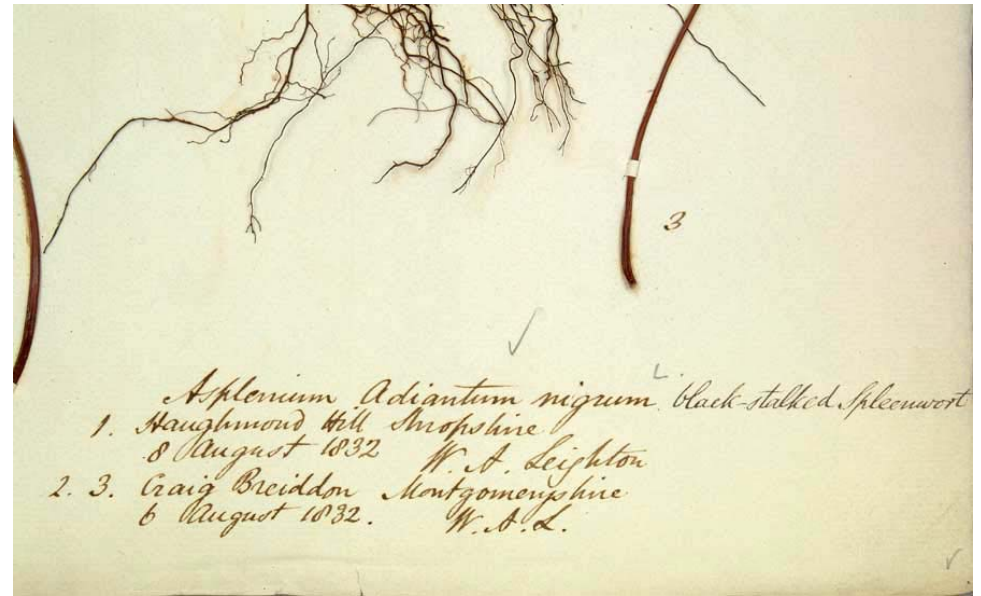 3
Asplenium Adiantum nigrum L. black-stalked Spleenwort
1. Haughmond Hill Shropshire
8 August 1832 W. A. Leighton
2. 3. Craig Breiddon Montgomeryshire
6 August 1832. W. A. L.